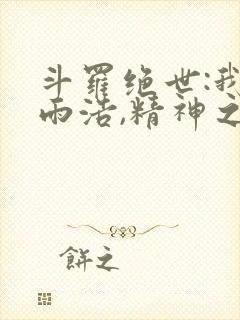 斗羅绝世:我
雨浩,精神之
餅之